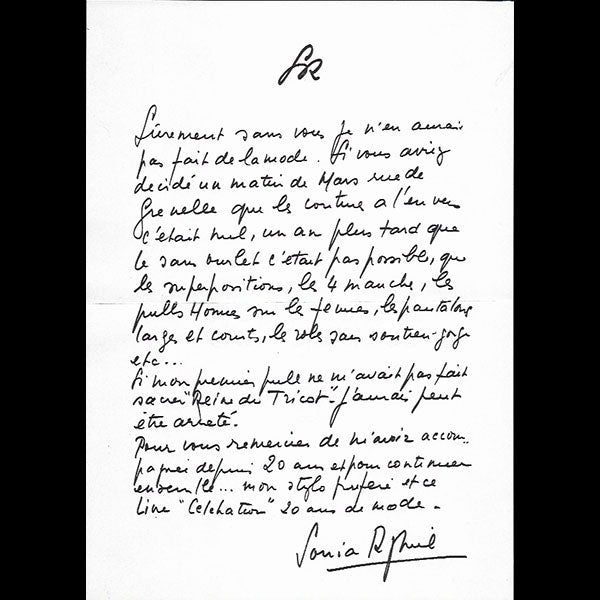 SR
Sûrement sans vous je n'en aurais
pas fait de la mode. Si vous aviez
décidé un matin de Mars rue de
Grenelle que les couture a l'envers
c'était nul, un an plus tard que
le sans ourlet c'était pas possible, que
les superpositions, les 4 manche, les
pulls Homes sur les femmes, les pantalons
larges et courts, les robes sans soutien-gorge
etc...
Si mon premier pull ne m'avait pas fait
sacrer "Reine du Tricot". J'aurai peut
être arreté.
Pour vous remercier de m'avoir accom-
pagnée depuis 20 ans et pour continuer
ensemble... mon stylo préféré et ce
livre "Celebration" 20 ans de mode.
Sonia Rykiel